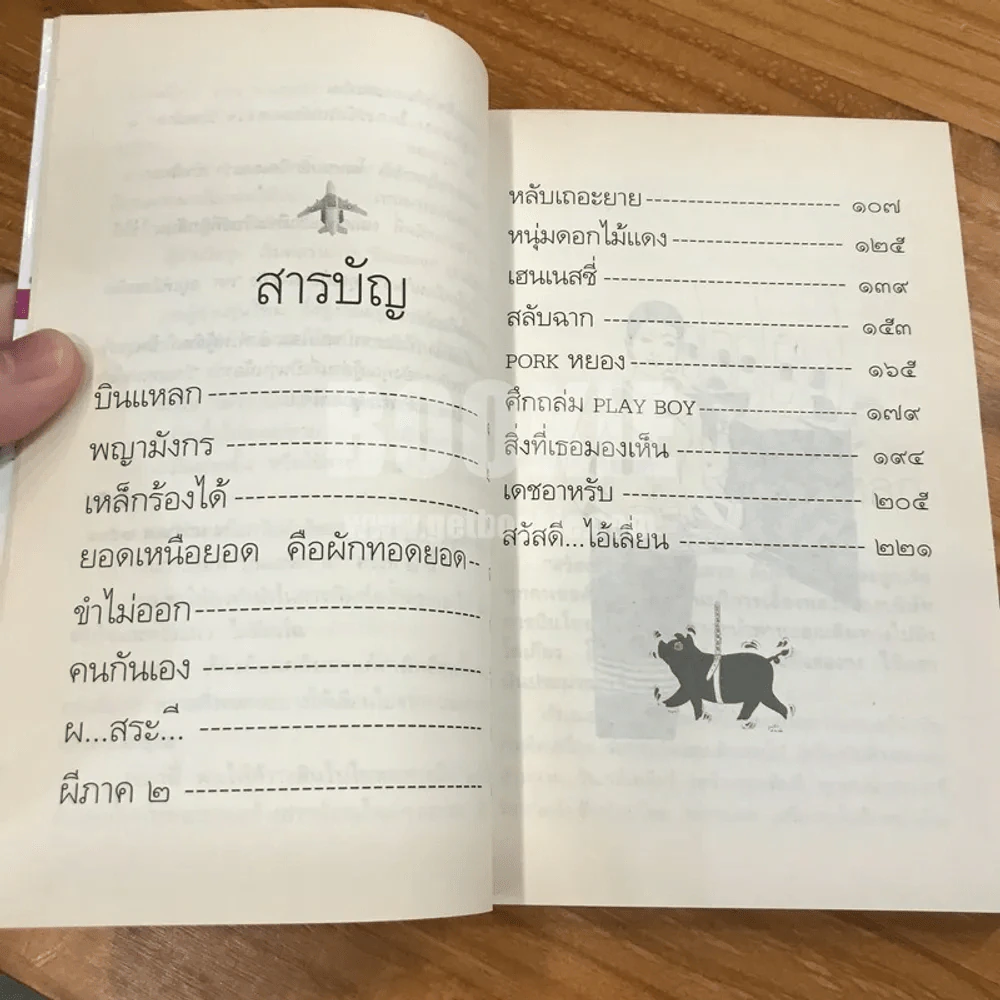 สารบัญ
บินแหลก
พญามังกร
เหล็กร้องได้
ยอดเหนือยอด คือผักทอดยอด
ขำไม่ออก
คนกันเอง
ผ...สระ...ี
ผีภาค ๒
หลับเถอะยาย ๑๐๗
หนุ่มดอกไม้แดง ๑๒๕
เฮนเนสซี่ ๑๓๙
สลับฉาก ๑๕๓
PORK หยอง ๑๖๕
ศึกถล่ม PLAY BOY ๑๗๙
สิ่งที่เธอมองเห็น ๑๙๔
เดชอาหรับ ๒๐๕
สวัสดี...ไอ้เลี่ยน ๒๒๑